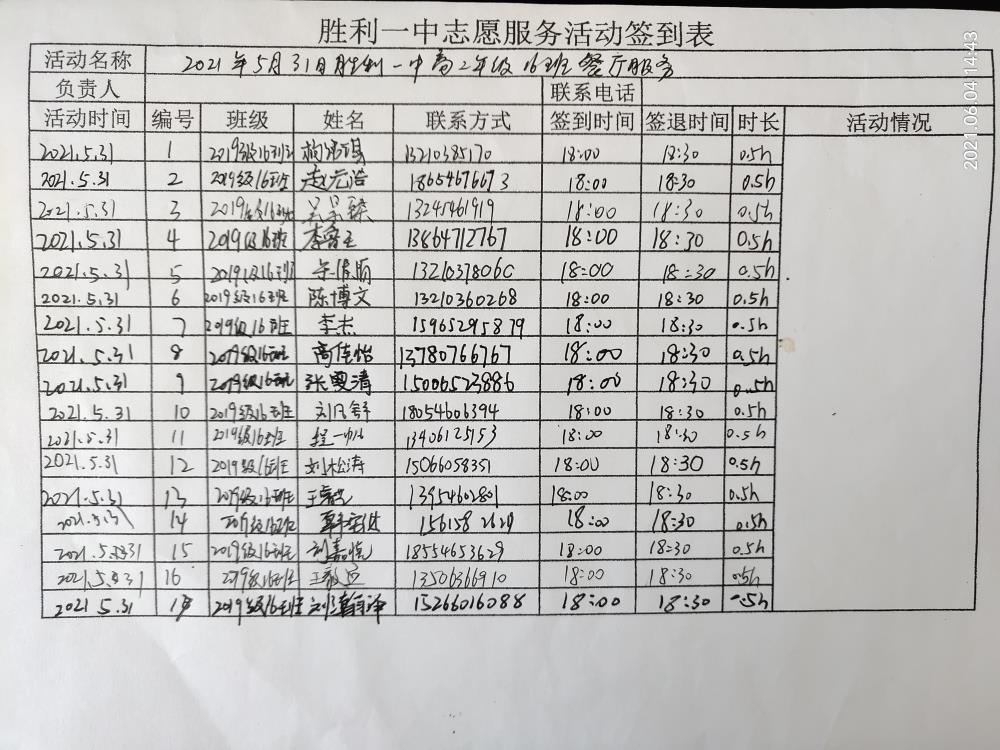 胜利一中志愿服务活动签到表
活动名称 2021年5月31日胜利一中高2年级16班餐厅服务
负责人 联系电话
活动时间 编号 班级 姓名 联系方式 签到时间 签退时间 时长 活动情况
2021.5.31 1 2019级16班 13210385170 18:00 18:30 0.5h
2021.5.31 2 2019级16班 赵元浩 18654676673 18:00 18:30 0.5h
2021.5.31 3 2019级16班 13245461919 18:00 18:30 0.5h
2021.5.31 4 2019级16班 13864712767 18:00 18:30 0.5h
2021.5.31 5 2019级16班 13210378060 18:00 18:30 0.5h
2021.5.31 6 2019级16班 陈博文 13210360268 18:00 18:30 0.5h
2021.5.31 7 2019级16班 李杰 15965295879 18:00 18:30 0.5h
2021.5.31 8 2019级16班 高佳怡 13780766767 18:00 18:30 0.5h
2021.5.31 9 2019级16班 张雯清 15006523886 18:00 18:30 0.5h
2021.5.31 10 2019级16班 18054606394 18:00 18:30 0.5h
2021.5.31 11 2019级16班 13406125153 18:00 18:30 0.5h
2021.5.31 12 2019级16班 刘松涛 15066058351 18:00 18:30 0.5h
2021.5.31 13 2019级16班 1395462801 18:00 18:30 0.5h
2021.5.31 14 2019级16班 18:00 18:30 0.5h
15 2019级16班 刘嘉悦 18554653629 18:00 18:30 0.5h
16 13506366910 18:00 18:30 0.5h
2021 5.31 2019级16班 15266016088 18:00 18:30 0.5h
2021.06.04 14:43